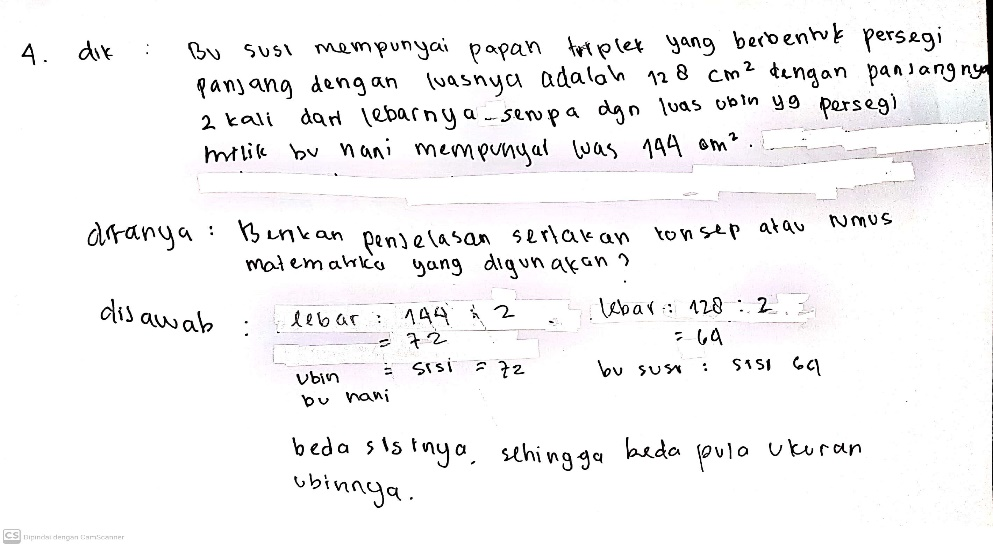 4. dik : Bu susi mempunyai papan triplek yang berbentuk persegi
panjang dengan luasnya adalah 128 cm² dengan panjangnya
2 kali dari lebarnya serupa dgn luas ubin yg persegi
milik bu nani mempunyai luas 144 cm².
ditanya : Berikan penjelasan sertakan konsep atau rumus
matematika yang digunakan?
dijawab : lebar : 144 : 2 lebar : 128 : 2
= 72 = 64
ubin = sisi = 72 bu susi : sisi 64
bu nani
beda sisinya, sehingga beda pula ukuran
ubinnya.
CS Dipindai dengan CamScanner